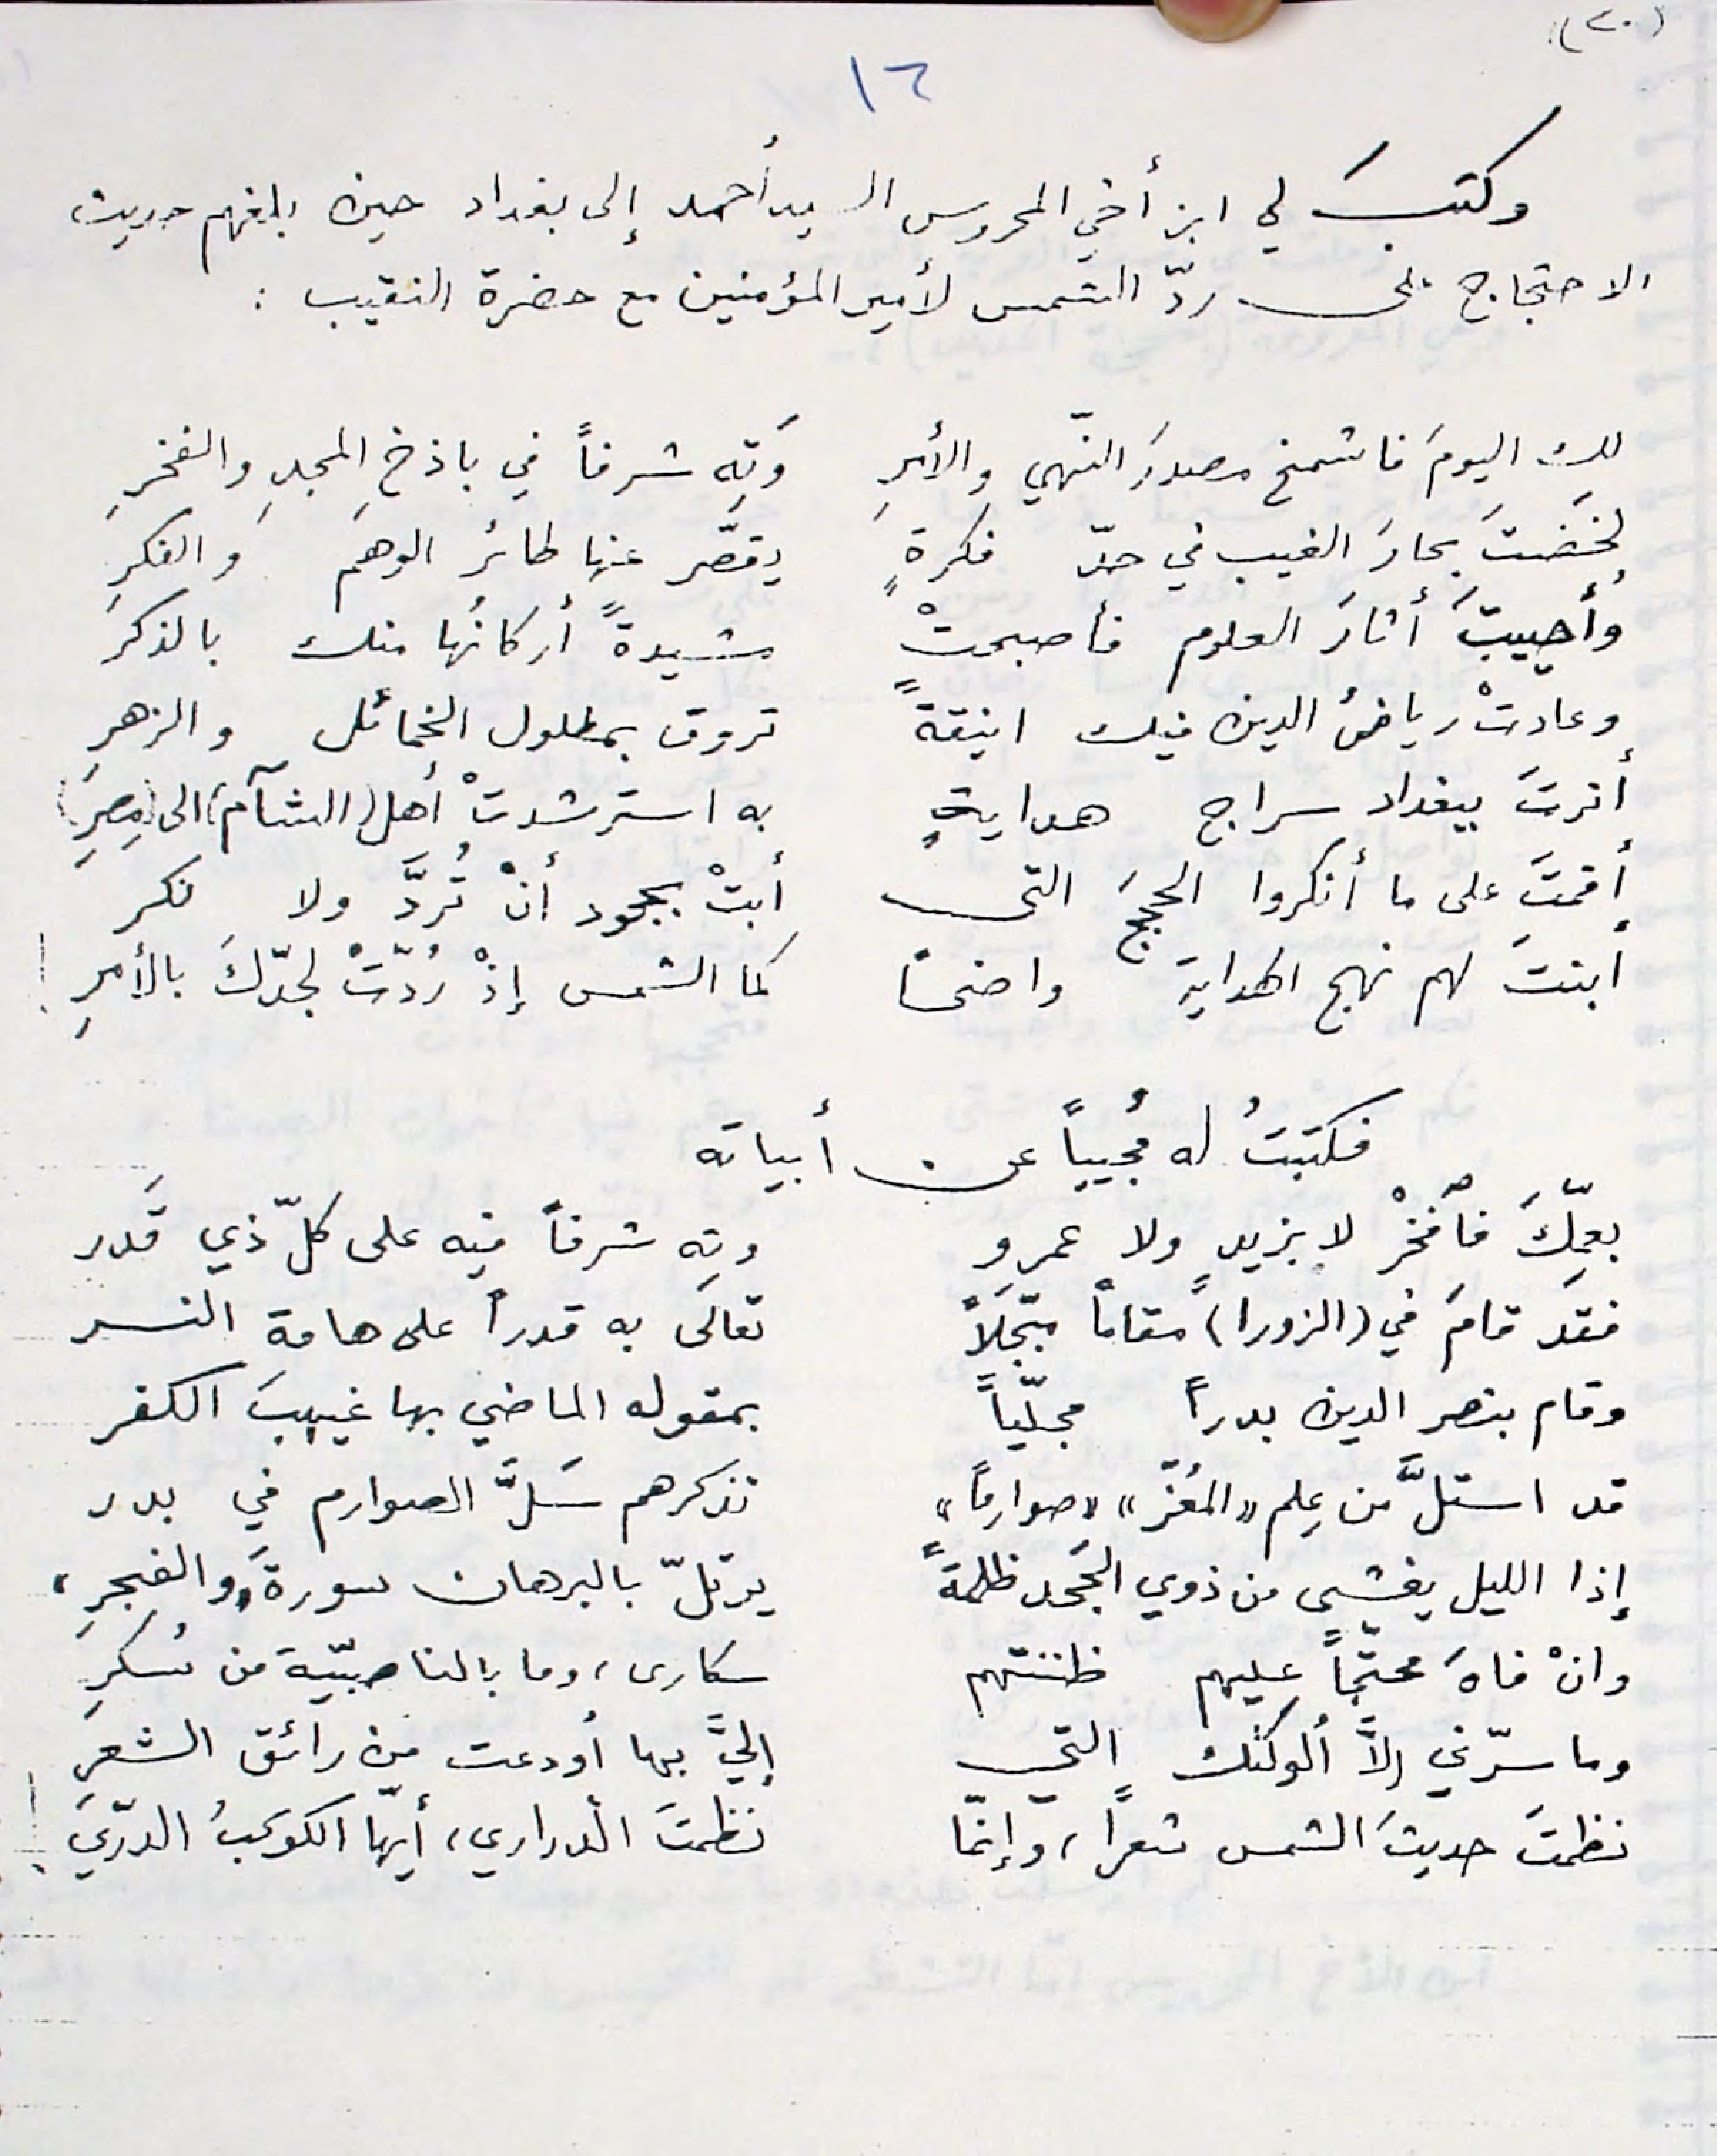 (٢٠)
١٦
وكتبَ لي ابن أخي المحروس السيد أحمد إلى بغداد حين بلغهم حديث
الاحتجاج على ردّ الشمس لأمير المؤمنين مع حضرة النقيب :
لك اليومَ فاشمخ مصدرَ النّهي والأمرِ وَتِه شرفاً في باذخِ المجدِ والفخرِ
لخضتَ بحارَ الغيب في حدّ فكرةٍ يقصّر عنها طائرُ الوهم والفكرِ
وأحييتَ أثارَ العلوم فأصبحتْ مشيدةً أركانُها منك بالذكرِ
وعادتْ رياضُ الدين فيك انيقةً تروق بمطلول الخمائل والزهرِ
أنرتَ ببغداد سراج هدايةٍ به استرشدتْ أهل (الشآم) الى (مصرِ)
أقمتَ على ما أنكروا الحججَ التي أبتْ بجحود أنْ تُردَّ ولا نكر
أبنتَ لهم نهج الهداية واضحاً كما الشمس إذْ رُدّتْ لجدّكَ بالأمرِ !
فكتبتُ له مُجيباً عن أبياته
بعمّكَ فافخرْ لا بزيدٍ ولا عمرو وتِه شرفاً فيه على كلّ ذي قَدر
فقد قامَ في (الزورا) مقاماً مبجّلاً تعالى به قدراً على هامة النسر
وقام بنصر الدين بدراً مجلّياً بمقوله الماضي بها غيهبَ الكفر
قد استلَّ من عِلم «المعُزّ» «صوارماً» تذكرهم سَلَّ الصوارم في بدر
إذا الليل يغشى من ذوي الجَحد ظلمةً يرتلّ بالبرهان سورةَ «والفجرِ»
وانْ فاهَ محتجّاً عليهم ظننتهم سكارى، وما بالناصبيّة من سُكرِ
وما سرّني إلاَّ ألوكتك التي إليَّ بها أودعت من رائق الشعرِ
نظمتَ حديثَ الشمس شعراً، وإنمّا نظمتَ الدراري، أيّها الكوكبُ الدرّي !